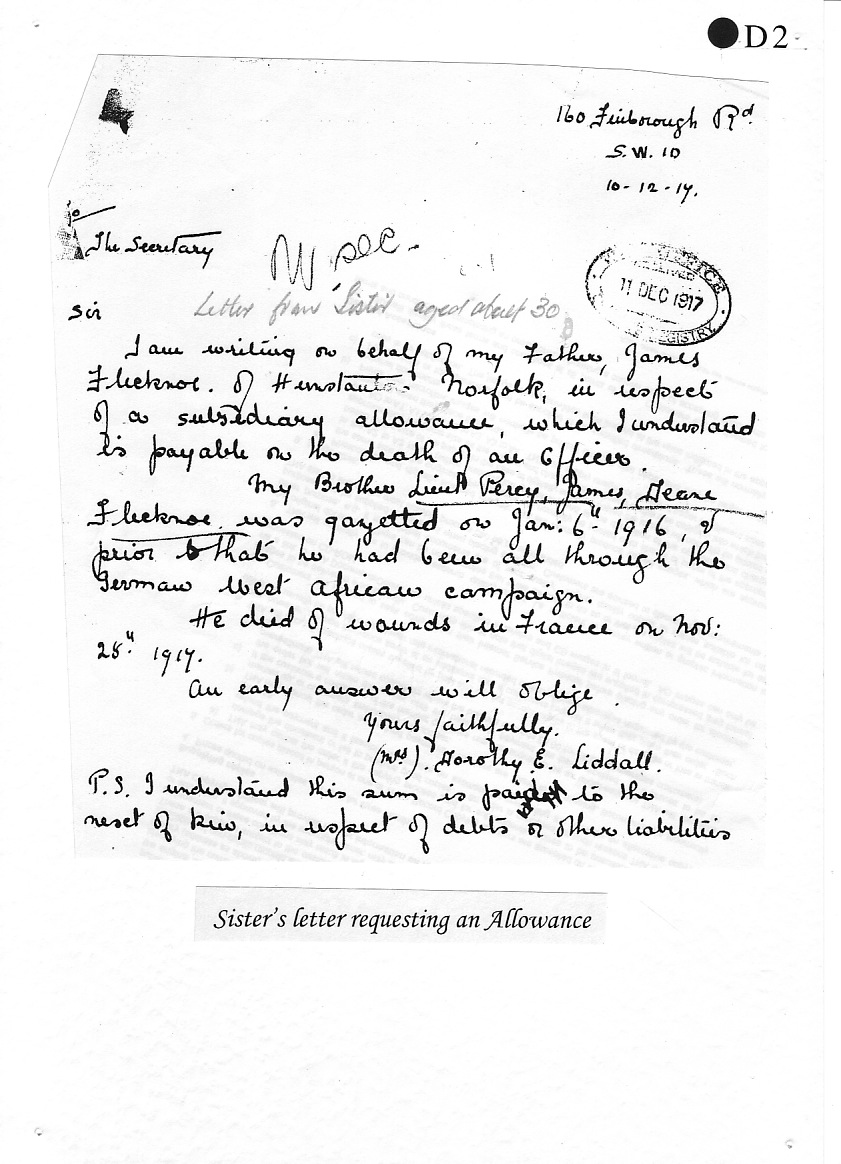 D2
160 Finborough Rd.
S.W. 10
10-12-17.
The Secretary
11 DEC 1917
REGISTRY
Letter from Sister aged about 30
Sir
I am writing on behalf of my Father, James
Flecknoe. of Hunstanton Norfolk, in respect
of a subsidiary allowance, which I understand
is payable on the death of an Officer.
My Brother Lieut Percy, James, Deane
Flecknoe. was gazetted on Jan: 6th 1916, &
prior to that he had been all through the
German West African campaign.
He died of wounds in France on Nov:
28th 1917.
An early answer will oblige.
Yours faithfully.
(Mrs). Dorothy E. Liddall.
P.S. I understand this sum is paid to the
next of kin, in respect of debts or other liabilities
Sister's letter requesting an Allowance